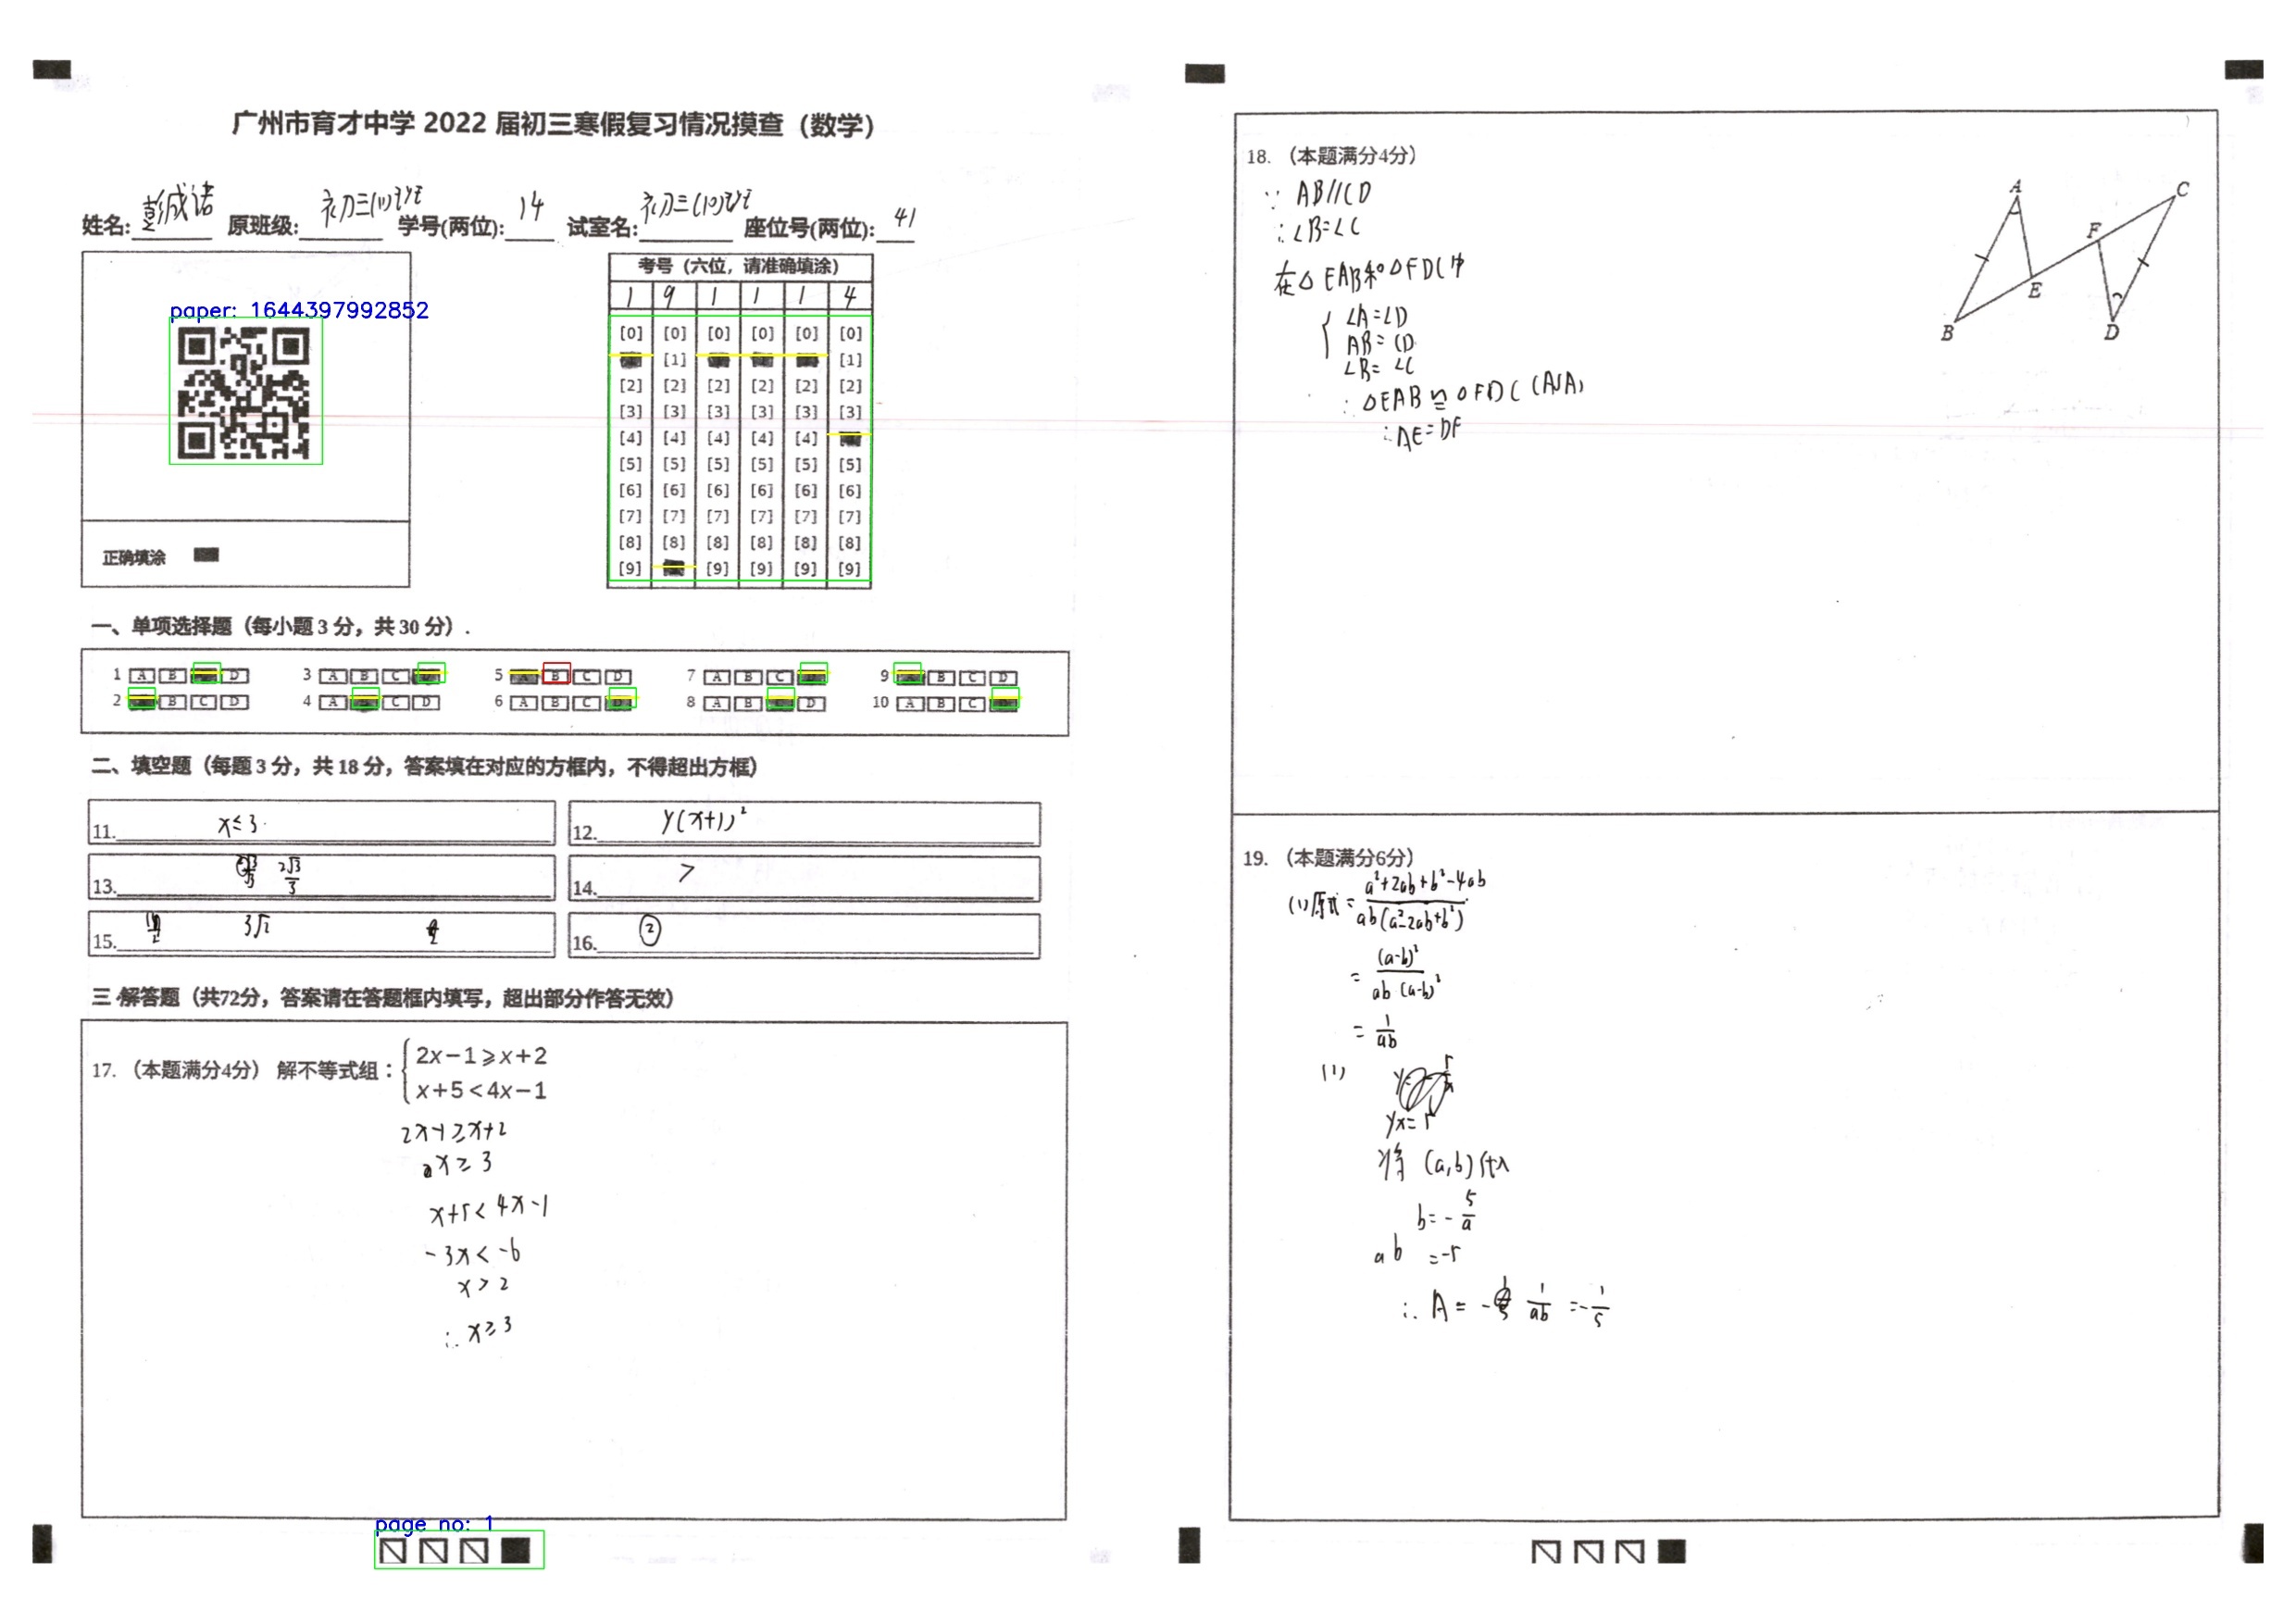 广州市育才中学 2022 届初三寒假复习情况摸查（数学）
姓名: 彭成诺 原班级: 初三(11)班 学号(两位): 14 试室名: 初三(10)班 座位号(两位): 41
paper: 1644397992852
正确填涂
考号（六位，请准确填涂）
1 9 1 1 1 4
[0] [0] [0] [0] [0] [0]
[1] [1]
[2] [2] [2] [2] [2] [2]
[3] [3] [3] [3] [3] [3]
[4] [4] [4] [4] [4]
[5] [5] [5] [5] [5] [5]
[6] [6] [6] [6] [6] [6]
[7] [7] [7] [7] [7] [7]
[8] [8] [8] [8] [8] [8]
[9] [9] [9] [9] [9]
一、单项选择题（每小题 3 分，共 30 分）.
1 A B D 3 A B C 5 B C D 7 A B C 9 B C D
2 B C D 4 A C D 6 A B C 8 A B D 10 A B C
二、填空题（每题 3 分，共 18 分，答案填在对应的方框内，不得超出方框）
11. x≤3
12. y(x+1)²
13. 2√3/3
14. >
15. 3√2
16. ②
三 解答题（共72分，答案请在答题框内填写，超出部分作答无效）
17. （本题满分4分） 解不等式组：{2x−1⩾x+2
x+5<4x−1
2x-1≥x+2
x≥3
x+5<4x-1
-3x<-6
x>2
∴x≥3
page no: 1
18. （本题满分4分）
∵ AB//CD
∴∠B=∠C
在△EAB和△FDC中
{∠A=∠D
AB=CD
∠B=∠C
∴△EAB≌△FDC (ASA)
∴AE=DF
A
C
F
E
B
D
19. （本题满分6分）
(1)原式=(a²+2ab+b²-4ab)/(ab(a²-2ab+b²))
=(a-b)²/(ab(a-b)²)
=1/ab
(1)
yx=5
将 (a,b)代入
b=-5/a
ab =-5
∴A= 1/ab =-1/5